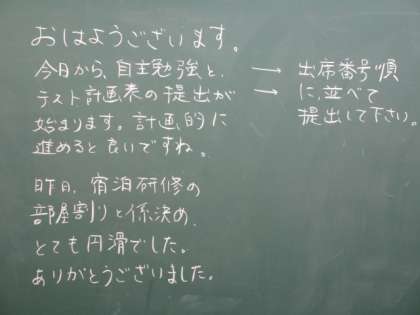 おはようございます。
今日から、自主勉強と、
テスト計画表の提出が
始まります。計画的に
進めると良いですね。
→ 出席番号順
→ に、並べて
提出して下さい。
昨日、宿泊研修の
部屋割りと係決め、
とても円滑でした。
ありがとうございました。